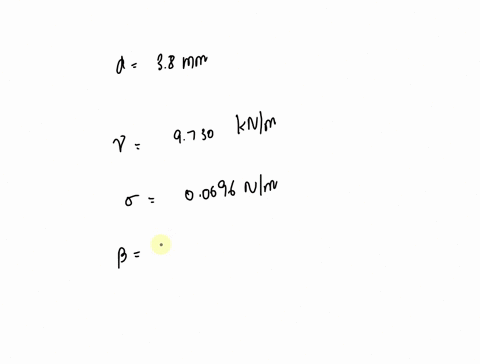 d = 3.8 mm
γ = 9.730 kN/m
σ = 0.0696 N/m
β =